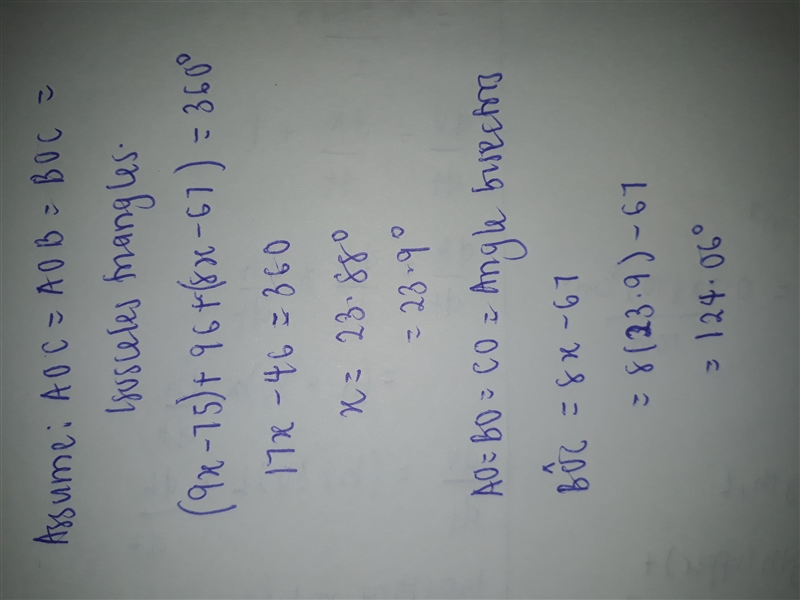 Assume: AOC = AOB = BOC =
Isosceles triangles.
(9x-75)+96+(8x-67) = 360°
17x - 46 = 360
x = 23.88°
= 23.9°
AO=BO=CO = Angle bisectors
BÔC = 8x - 67
= 8(23.9) - 67
= 124.06°